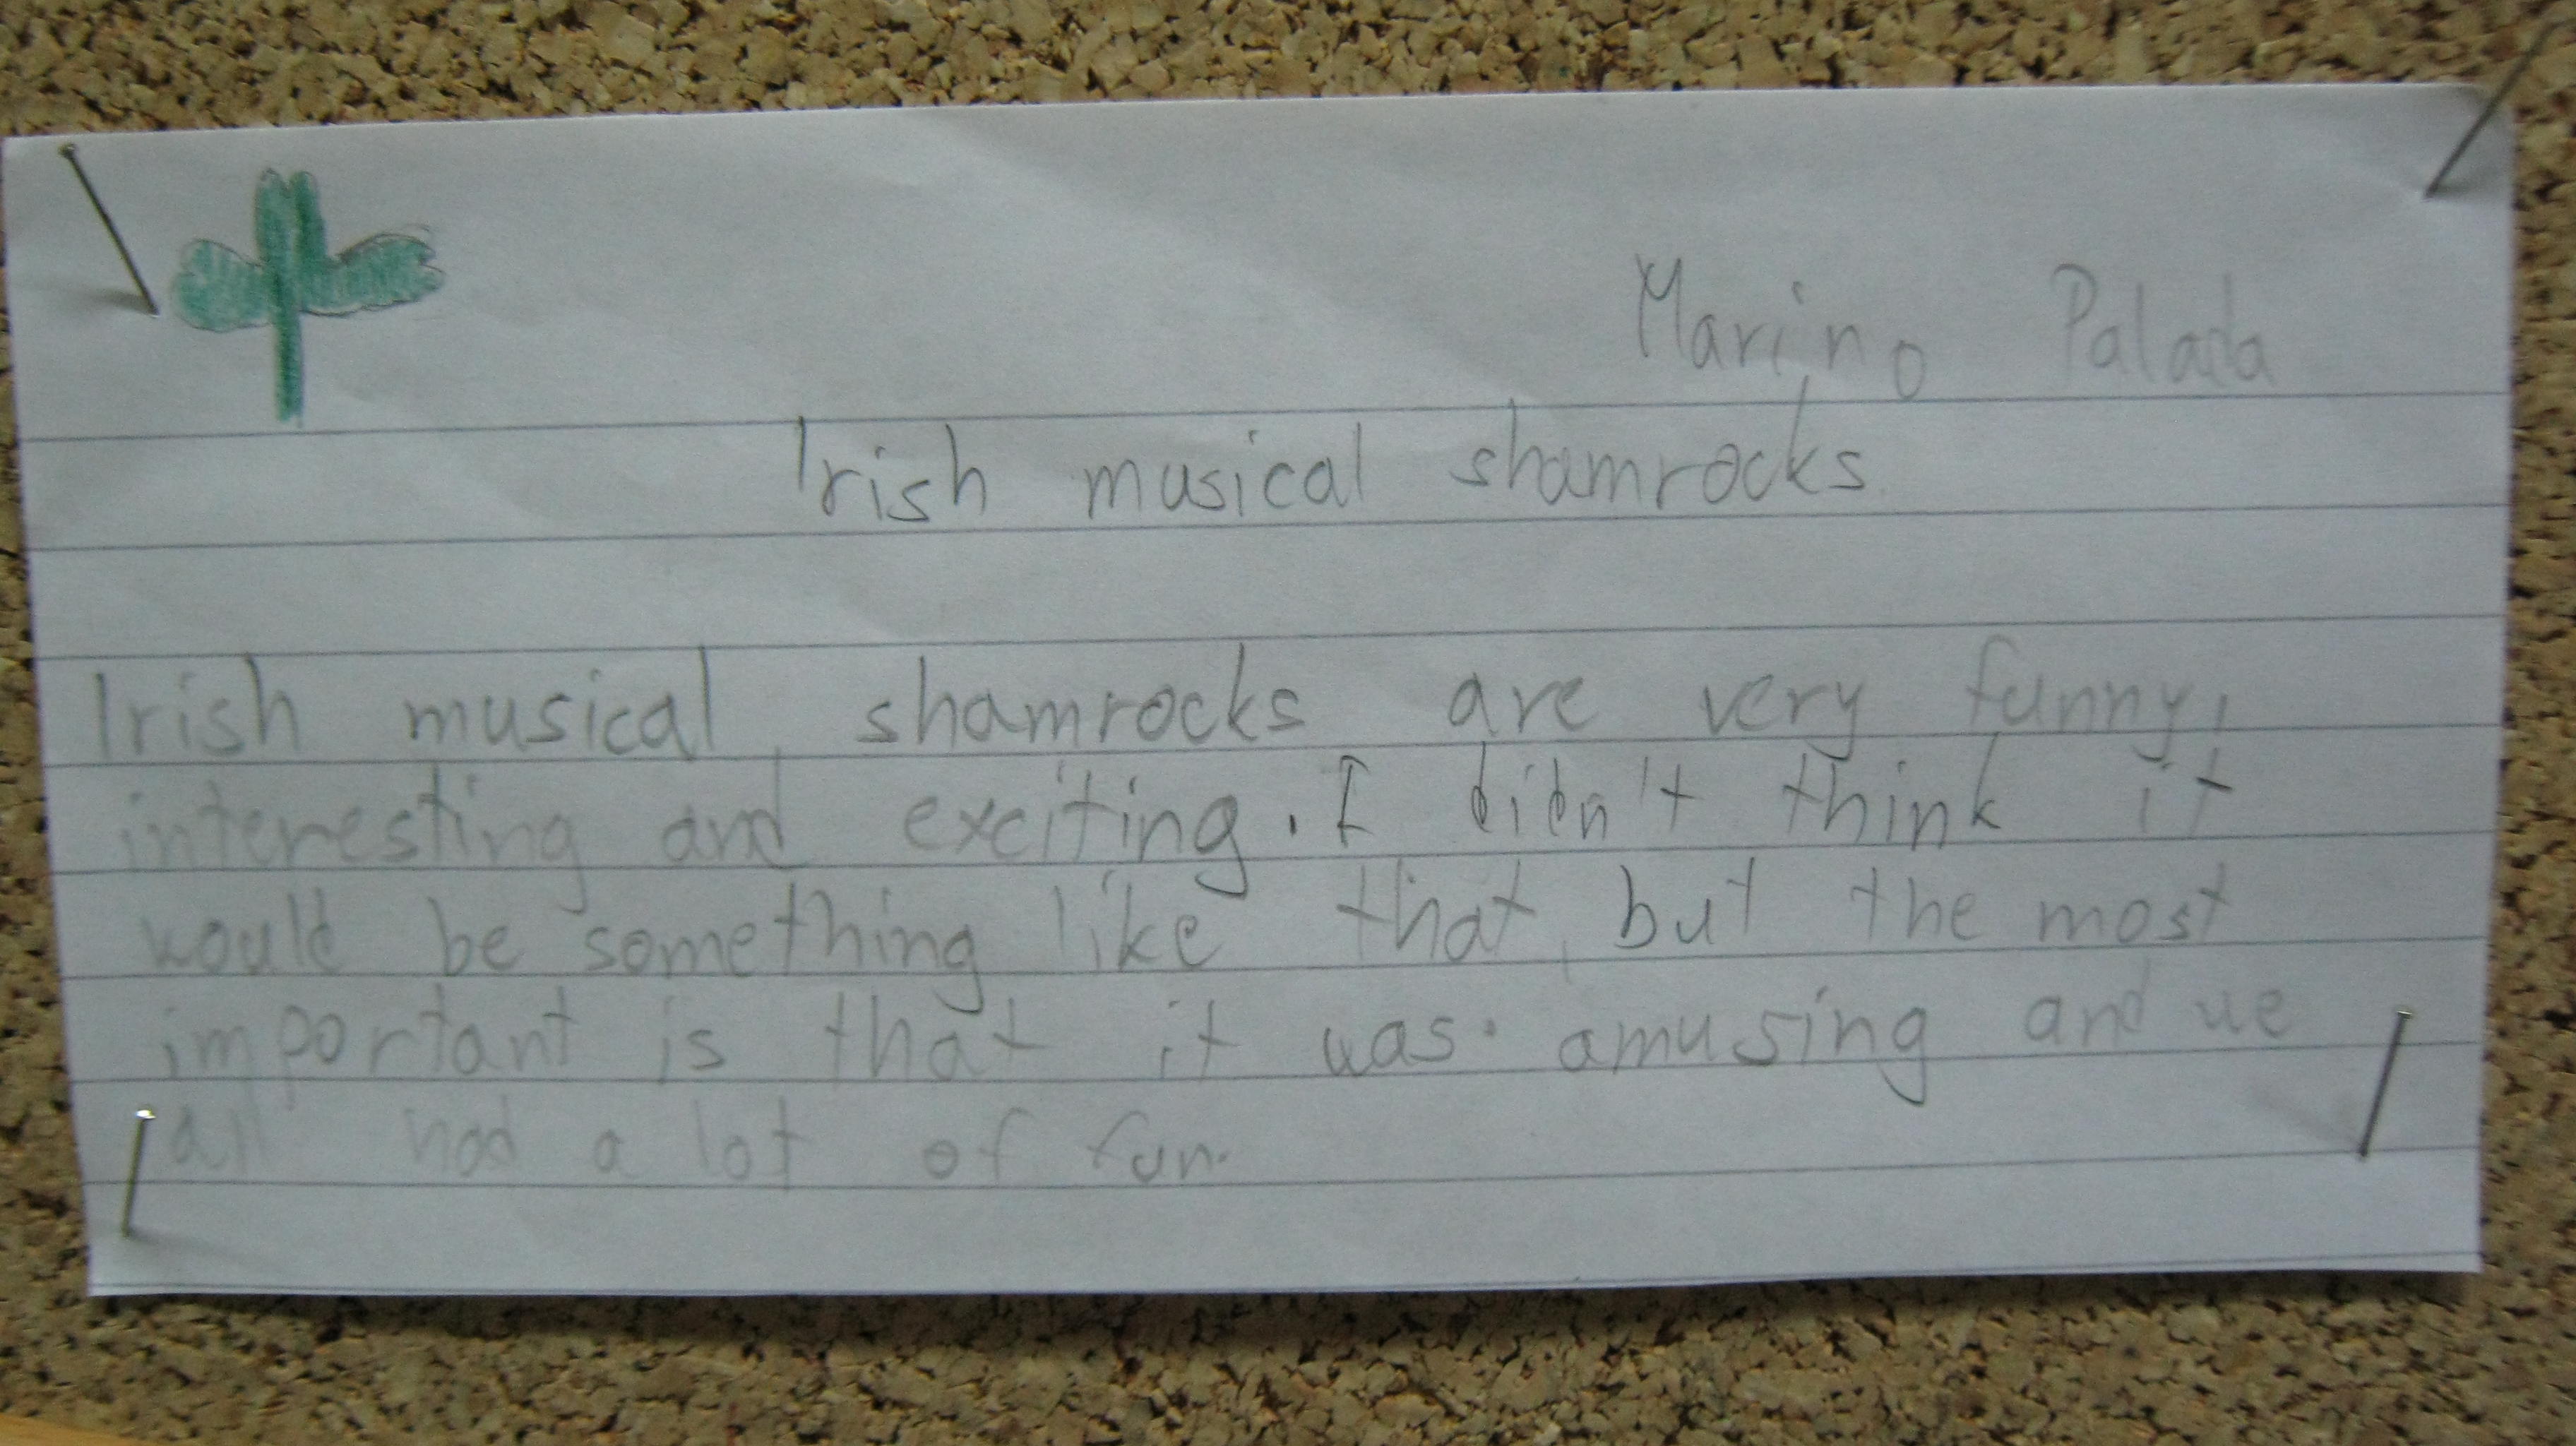 Marino Palada
Irish musical shamrocks
Irish musical shamrocks are very funny,
interesting and exciting. I didn't think it
would be something like that, but the most
important is that it was amusing and we
all had a lot of fun.